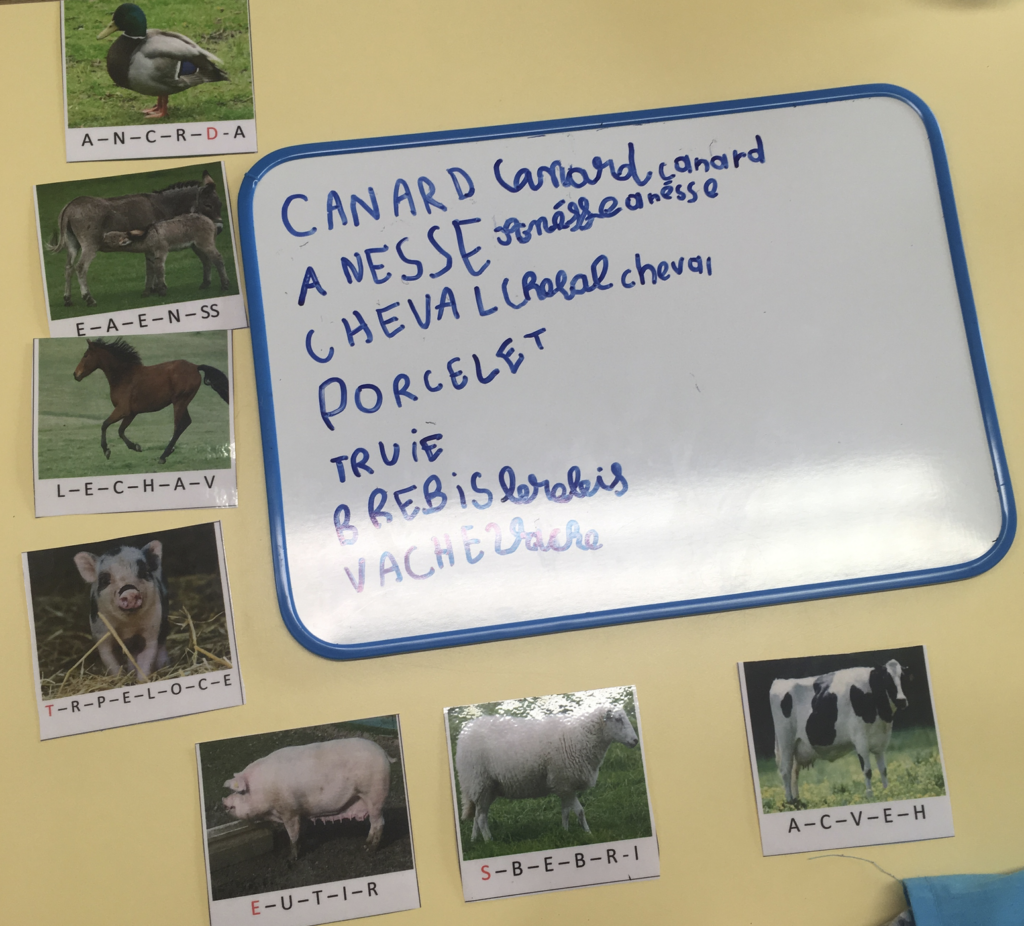 A-N-C-R-D-A
E-A-E-N-SS
L-E-C-H-A-V
T-R-P-E-L-O-C-E
E-U-T-I-R
S-B-E-B-R-I
A-C-V-E-H
CANARD Canard canard
ANESSE Anésse anésse
CHEVAL Cheval cheval
PORCELET
TRUiE
BREBiS brebis
VACHE Vache